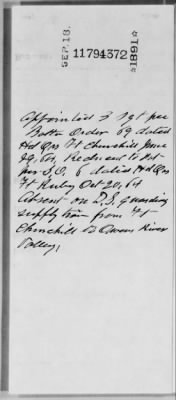 SEP. 18.
11794372
*1891*
Appointed 3 Sgt per
Battn Order 69 dated
Hd Qrs Ft Churchill June
29, 64, Reduced to Pvt
per S.O. 6 dated Hd Qrs
Ft Ruby Oct 20, 64
Absent on D.S. guarding
supply train from Ft
Churchill to Owens River
Valley,